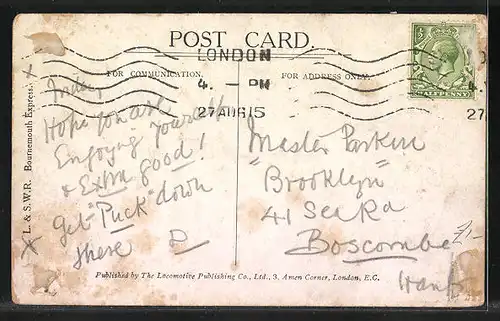 POST CARD.
LONDON
4. - PM
27 AUG 15
FOR COMMUNICATION.
FOR ADDRESS ONLY.
HALFPENNY
L. & S.W.R. Bournemouth Express.
Friday
Hope you are
Enjoying yourself
& Extra good!
Get "Puck" down
there D
Master Parkin
"Brooklyn"
41 Sea Rd
Boscombe
Hants
£1-
Published by The Locomotive Publishing Co., Ltd., 3, Amen Corner, London, E.C.